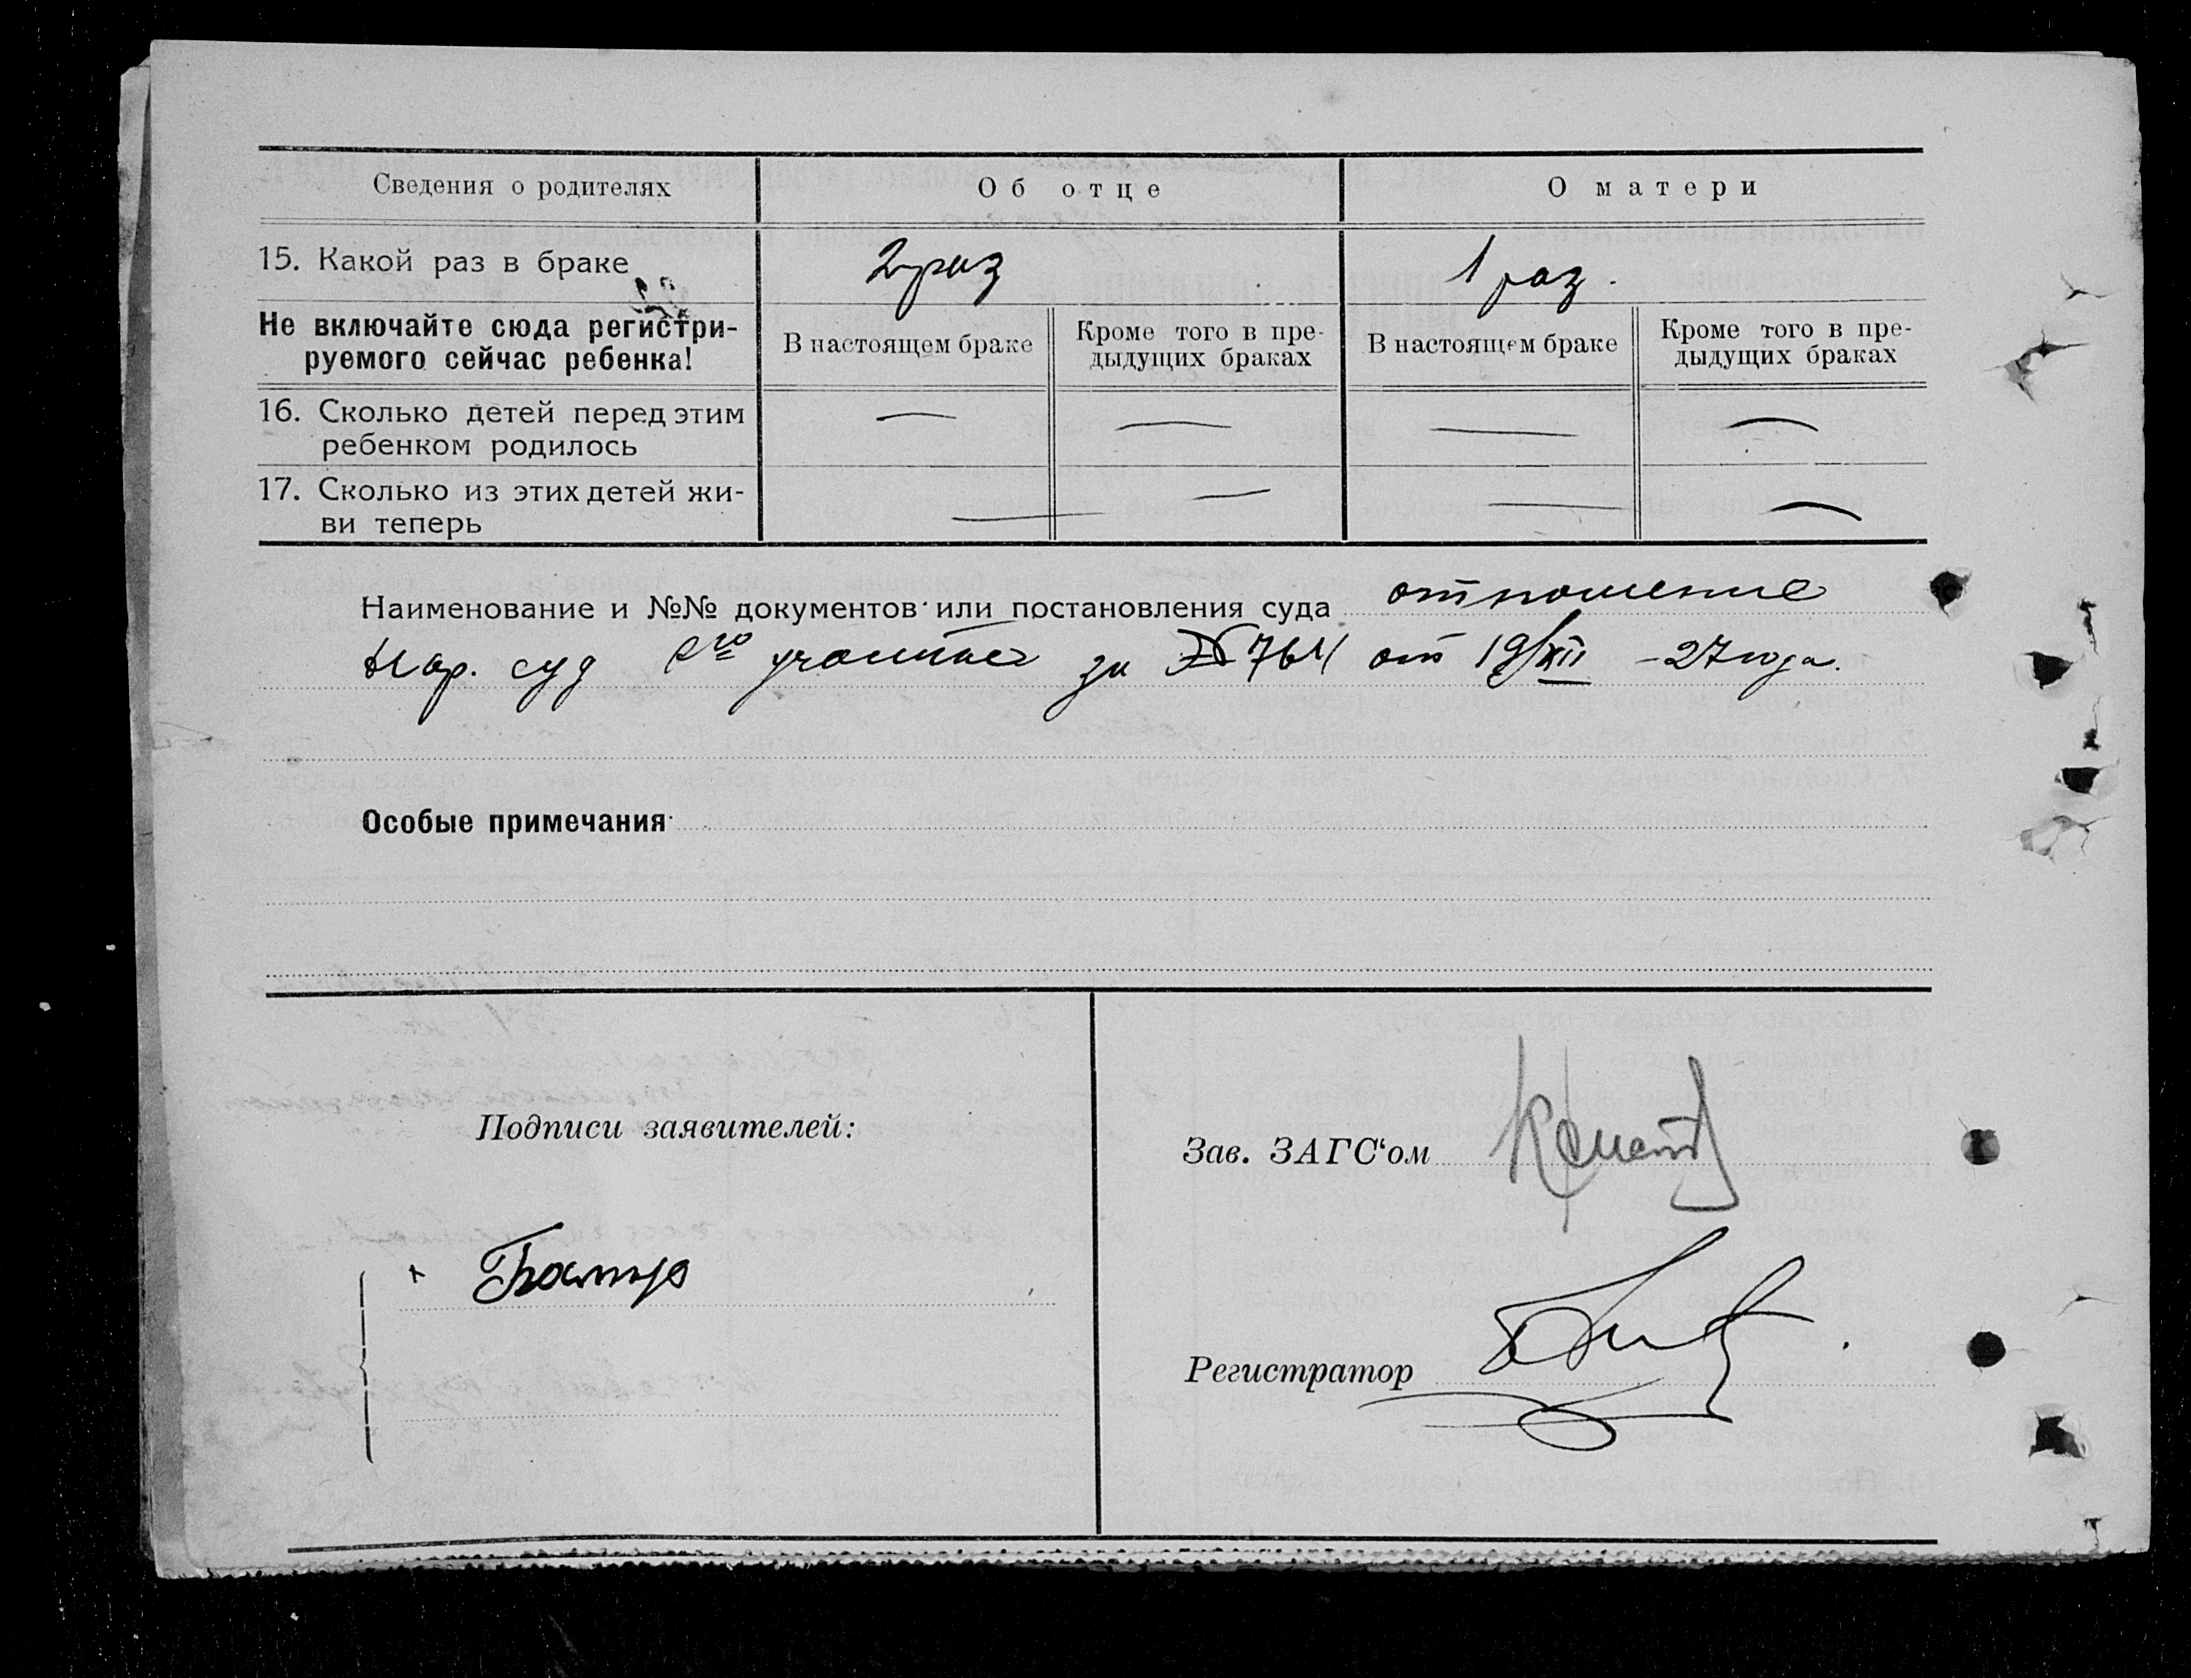 Сведения о родителях
Об отце
О матери
15. Какой раз в браке
2 раз
1 раз.
Не включайте сюда регистри-
руемого сейчас ребенка!
В настоящем браке
Кроме того в пре-
дыдущих браках
В настоящем браке
Кроме того в пре-
дыдущих браках
16. Сколько детей перед этим
ребенком родилось
— — — —
17. Сколько из этих детей жи-
ви теперь
— — — —
Наименование и №№ документов или постановления суда отношение
Нар. суд участка за № 764 от 19/XII –27 года.
Особые примечания
Подписи заявителей:
Зав. ЗАГС‘ом
Регистратор